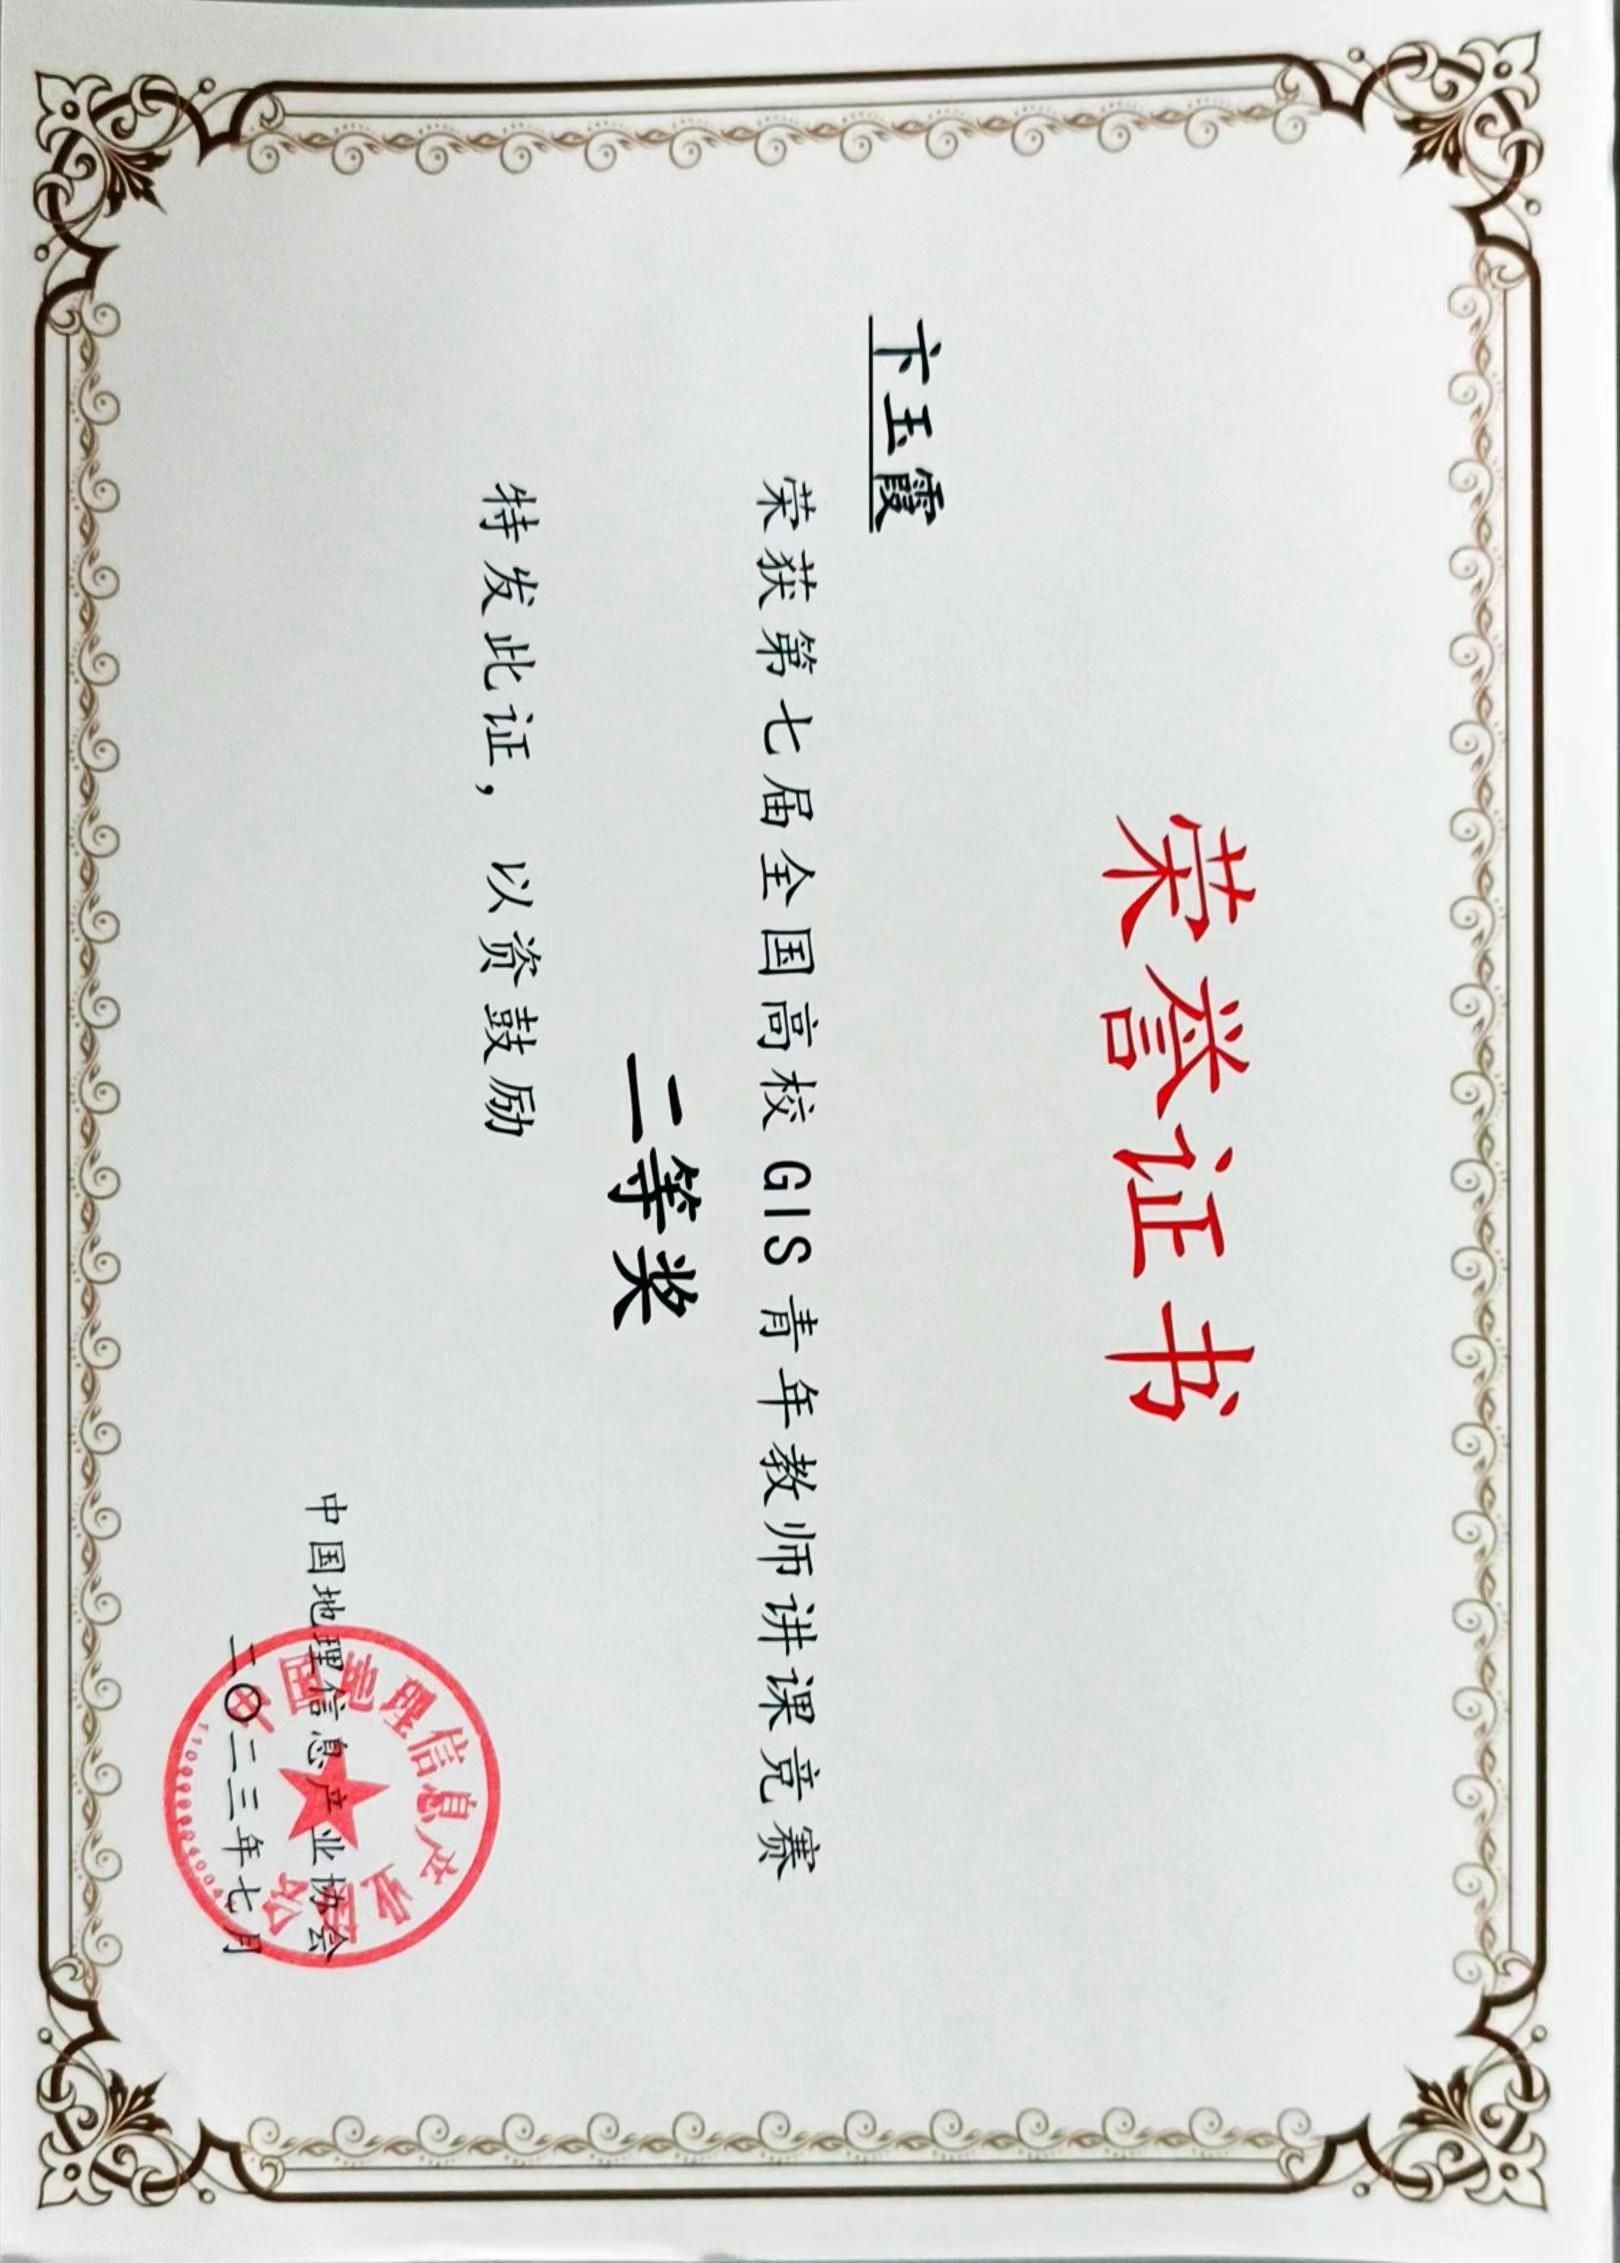 荣誉证书
卞玉霞
荣获第七届全国高校GIS青年教师讲课竞赛
二等奖
特发此证，以资鼓励
中国地理信息产业协会
二〇二三年七月
中国地理信息产业协会